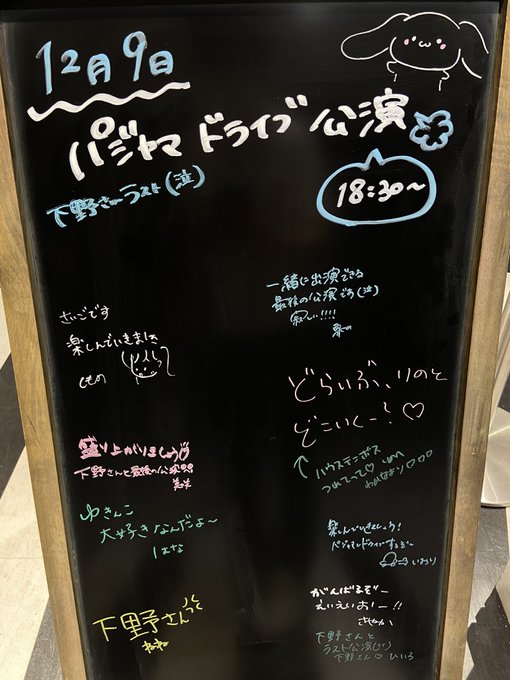 12月9日
パジャマドライブ公演
18:30~
下野さんラスト(泣)
一緒に出演できる
最後の公演です(泣)
寂しい!!!!
さいごです
楽しんでいきましょ
しもの
どらいぶ、りのと
どこいくー!♡
↑ハウステンボス
つれてって♡
盛り上がりましょう
下野さんと最後の公演
ゆきんこ
大好きなんだよ~
はな
楽しんでいきましょう!
パジャマでドライブするぞー
いおり
がんばるぞー
えいえいおー!!
さやか
下野さんっ
下野さんと
ラスト公演(泣)
下野さん♡ひいろ